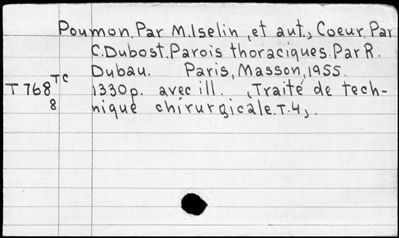 Poumon. Par M. Iselin, et aut., Coeur. Par
C. Dubost. Parois thoraciques. Par R.
Dubau. Paris, Masson, 1955.
T768 TC 1330p. avec ill. (Traité de tech-
8 nique chirurgicale. T. 4).